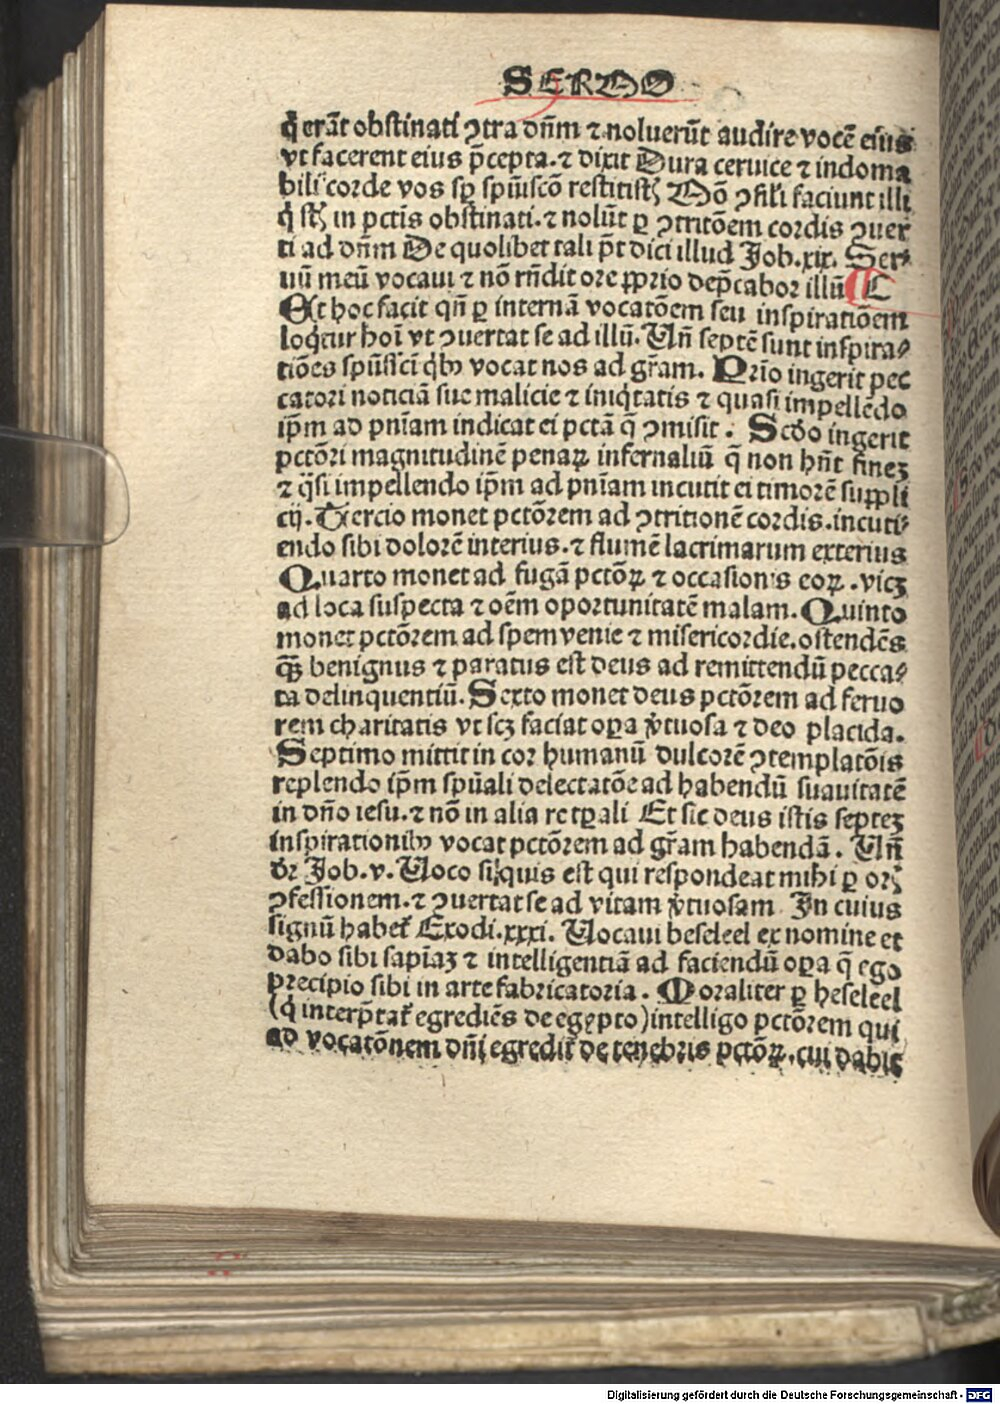 SERMO
q̇ erãt obstinati ꝯtra dñm ⁊ noluerũt audire vocẽ eius
vt facerent eius p̃cepta. ⁊ dixit Dura ceruice ⁊ indoma
bili corde vos sꝑ spũiscõ restitistꝭ Mõ ꝯsili faciunt illi
q̇ sũt in pctĩs obstinati. ⁊ nolũt ꝑ ꝯtritõem cordis ꝯuer
ti ad dñm De quolibet tali põt dici illud Job.xix. Ser
uũ meũ vocaui ⁊ nõ rñdit ore ꝓprio dep̃cabor illũ C
Et hoc facit qñ ꝑ internã vocatõem seu inspirationẽm
loq̇tur hoĩ vt ꝯuertat se ad illũ. Vñ septẽ sunt inspira⸗
tiões spũssci q̇bꝰ vocat nos ad gr̃am. Prĩo ingerit pec
catori noticiã sue malicie ⁊ iniq̇tatis ⁊ quasi impellẽdo
ip̃m ad pnĩam indicat ei pctã q̃ ꝯmisit. Scđo ingerit
pctõri magnitudinẽ penaꝝ infernaliũ q̃ non hñt finez
⁊ q̃si impellendo ip̃m ad pnĩam incutit ei timorẽ suppli
cij. Tercio monet pctõrem ad ꝯtritionẽ cordis. incuti⸗
endo sibi dolorẽ interius. ⁊ flumẽ lacrimarum exterius
Quarto monet ad fugã pctõꝝ ⁊ occasionis eoꝝ. vicꝫ
ad loca suspecta ⁊ oẽm oportunitatẽ malam. Quinto
monet pctõrem ad spem venie ⁊ misericordie. ostendẽs
qꝫ benignus ⁊ paratus est deus ad remittendũ pecca⸗
ta delinquentiũ. Sexto monet deus pctõrem ad feruo
rem charitatis vt scꝫ faciat oꝑa v̓tuosa ⁊ deo placida.
Septimo mittit in cor humanũ dulcorẽ ꝯtemplatõis
replendo ip̃m spũali delectatõe ad habendũ suauitatẽ
in dño iesu. ⁊ nõ in alia re tꝑali Et sic deus istis septeꝫ
inspirationibꝰ vocat pctõrem ad gr̃am habendã. Vñ
dr̃ Job.v. Uoco si quis est qui respondeat mihi ꝑ oris
ꝯfessionem. ⁊ ꝯuertat se ad vitam v̓tuosam In cuius
signũ habet̃ Exodi.xxxi. Uocaui beseleel ex nomine et
dabo sibi sapiãꝫ ⁊ intelligentiã ad faciendũ oꝑa q̃ ego
precipio sibi in arte fabricatoria. Moraliter ꝑ beseleel
(q̇ interp̃tat̃ egrediẽs de egypto) intelligo pctõrem qui
ad vocatõnem dñi egredit̃ de tenebris pctõꝝ. cui dabit
Digitalisierung gefördert durch die Deutsche Forschungsgemeinschaft - DFG